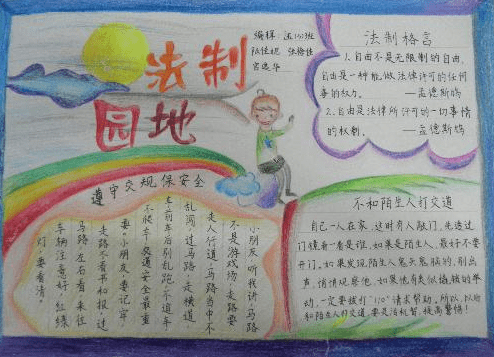 法制
园地
编辑:
法制格言
1.自由不是无限制的自由,
自由是一种能做法律许可的任何
事的权力。 —孟德斯鸠
2.自由是法律所许可的一切事情
的权利。 —孟德斯鸠
遵守交规保安全
小朋友听我讲,马路
不是游戏场,走路要
走人行道,马路当中不
乱闯,过马路,走横道
车前车后别乱跑,不追车
不爬车,交通安全最重
要。小朋友,要记牢,
走路不看书和报,过
马路,左右看,来往
车辆注意好,红绿
灯,要看清,
不和陌生人打交道
自己一人在家,这时有人敲门,先透过
门镜看一看是谁,如果是陌生人,最好不要
开门。如果发现陌生人鬼头鬼脑的,别出
声,悄悄观察他,如果他有类似撬锁的举
动,一定要拨打“110”请求帮助。所以,
和陌生人打交道,要是法机智,提高警惕!